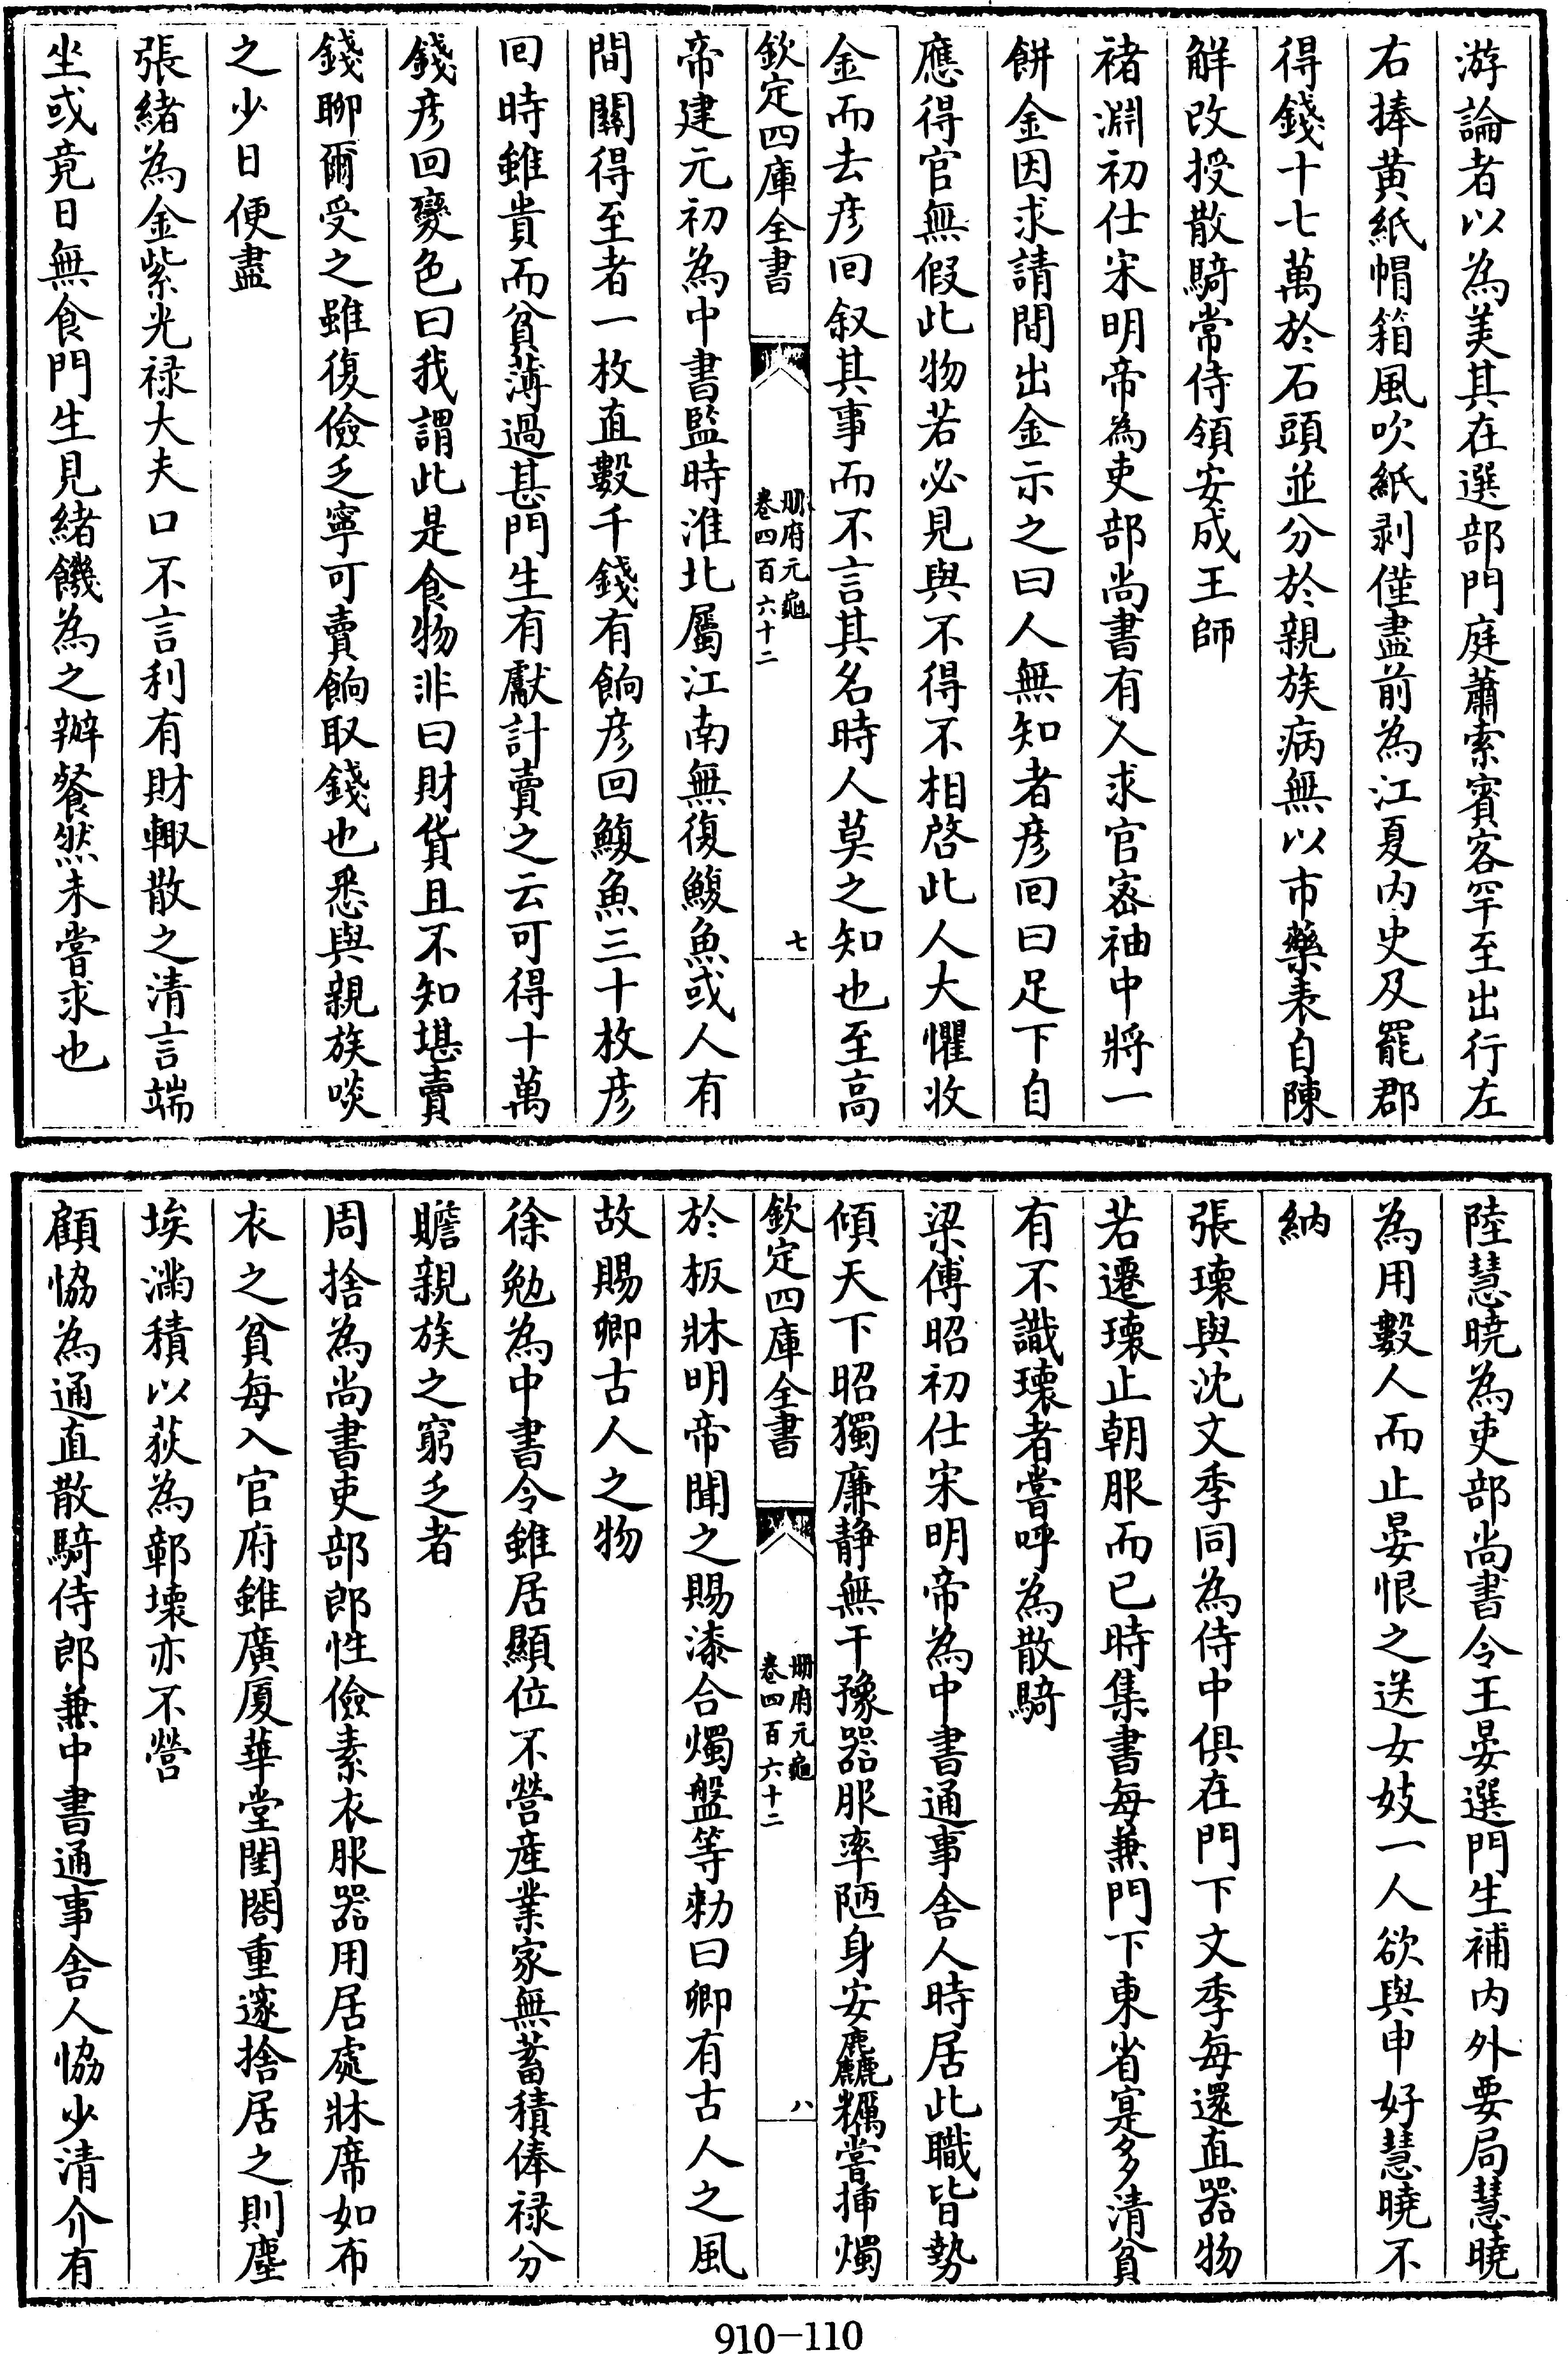 游論者以為美其在選部門庭蕭索賓客罕至出行左
右捧黄紙帽箱風吹紙剥僅盡前為江夏内史及罷郡
得錢十七萬於石頭並分於親族病無以市藥表自陳
解改授散騎常侍領安成王師
褚淵初仕宋明帝為吏部尚書有人求官宻袖中將一
餅金因求請間出金示之曰人無知者彦回曰足下自
應得官無假此物若必見與不得不相啓此人大懼收
金而去彦回叙其事而不言其名時人莫之知也至高
欽定四庫全書
冊府元龜
卷四百六十二
七
帝建元初為中書監時淮北屬江南無復鰒魚或人有
間關得至者一枚直數千錢有餉彦回鰒魚三十枚彦
回時雖貴而貧薄過甚門生有獻計賣之云可得十萬
錢彦回變色曰我謂此是食物非曰財貨且不知堪賣
錢聊爾受之雖復儉乏寧可賣餉取錢也悉與親族啖
之少日便盡
張緒為金紫光禄大夫口不言利有財輙散之清言端
坐或竟日無食門生見緒饑為之辦餐然未嘗求也
陸慧曉為吏部尚書令王晏選門生補内外要局慧曉
為用數人而止晏恨之送女妓一人欲與申好慧曉不
納
張瓌與沈文季同為侍中俱在門下文季每還直器物
若遷瓌止朝服而已時集書每兼門下東省寔多清貧
有不識瓌者嘗呼為散騎
梁傅昭初仕宋明帝為中書通事舍人時居此職皆勢
傾天下昭獨廉静無干豫器服率陋身安麤糲嘗挿燭
欽定四庫全書
冊府元龜
卷四百六十二
八
於板牀明帝聞之賜漆合燭盤等勅曰卿有古人之風
故賜卿古人之物
徐勉為中書令雖居顯位不營産業家無蓄積俸禄分
贍親族之窮乏者
周捨為尚書吏部郎性儉素衣服器用居處牀席如布
衣之貧每入官府雖廣厦華堂閨閤重邃捨居之則塵
埃滿積以荻為鄣壊亦不營
顧協為通直散騎侍郎兼中書通事舍人協少清介有
910-110